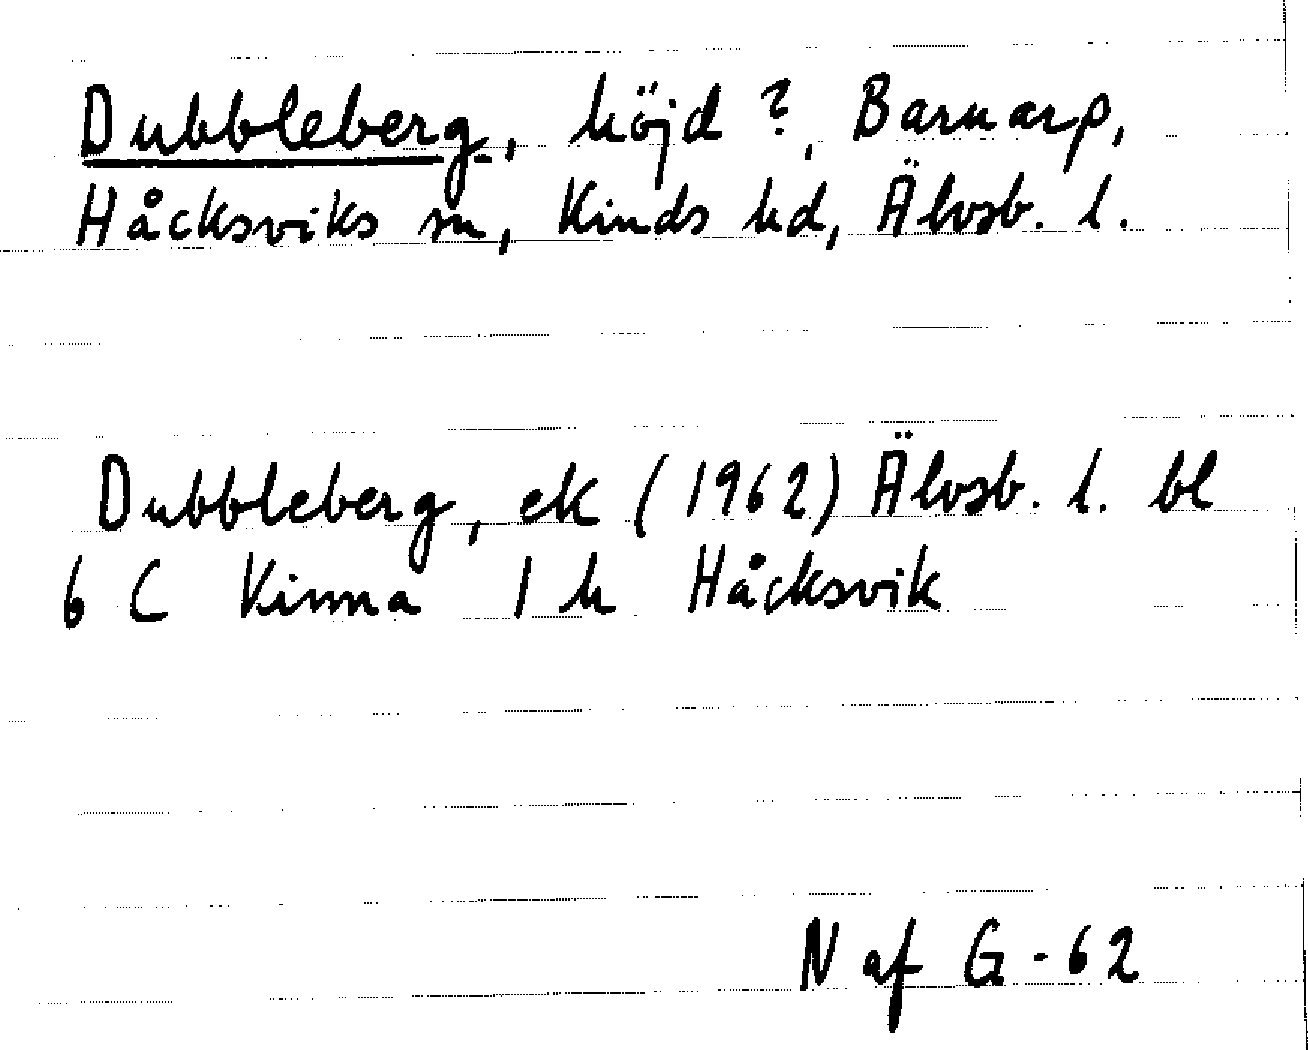 Dubbleberg, höjd ?, Barnarp,
Håcksviks sn, Kinds hd, Älvsb. l.
Dubbleberg, ek (1962) Älvsb. l. bl
6 C Kinna 1 h Håcksvik
N af G - 62